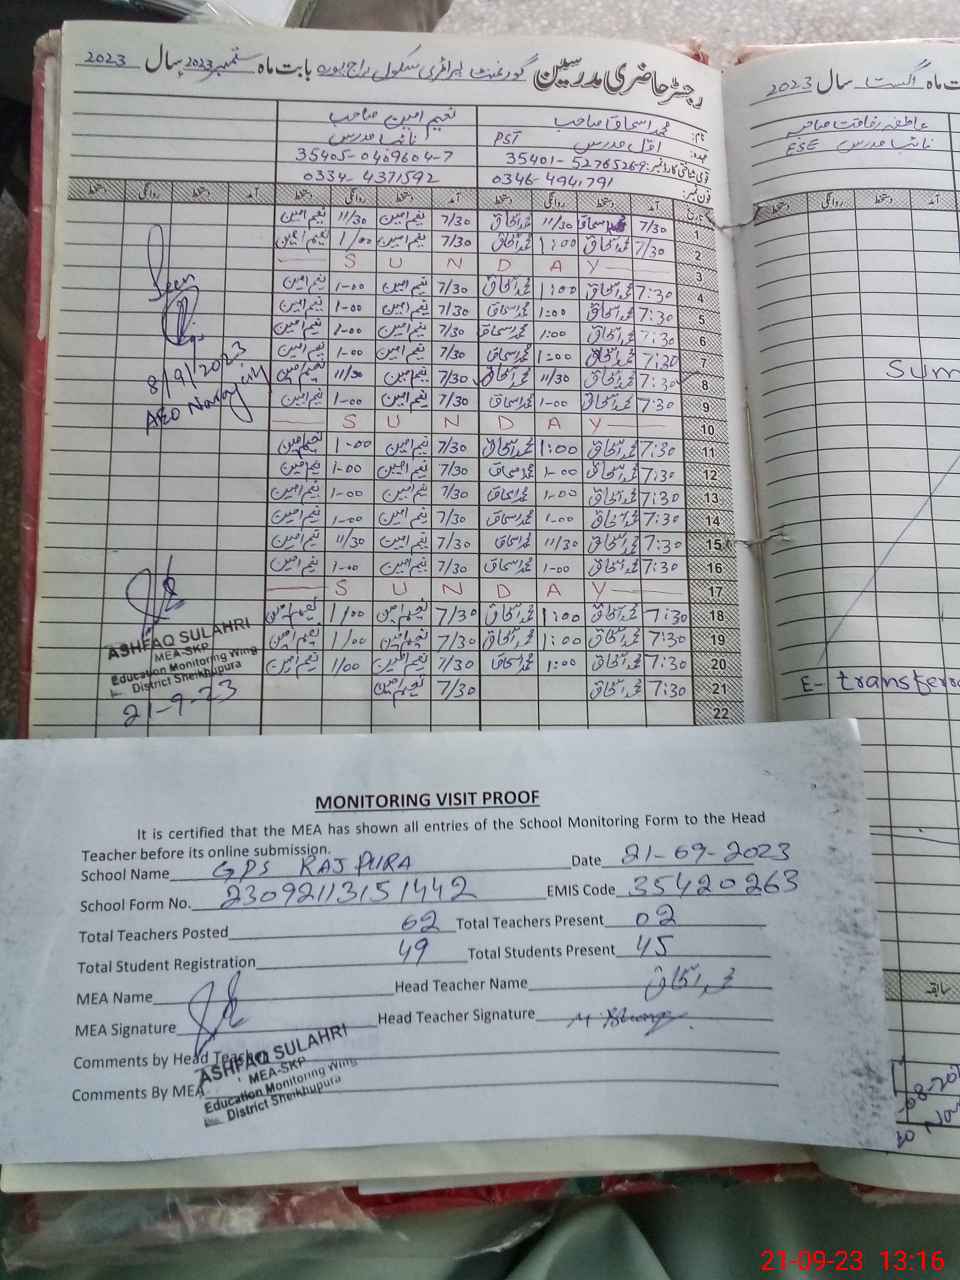 رجسٹر حاضری مدرسین گورنمنٹ پرائمری سکول راجپورہ بابت ماہ ستمبر 2023 سال 2023
نام: محمد اسحاق صاحب نعیم امین صاحب
عہدہ: اول مدرس PST نائب مدرس
قومی شناختی کارڈ نمبر: 35401-5276526-9 35405-0409604-7
فون نمبر: 0346-4941791 0334-4371592
تاریخ آمد دستخط روانگی دستخط آمد دستخط روانگی دستخط آمد دستخط روانگی دستخط
1 7/30 محمد اسحاق 11/30 محمد اسحاق 7/30 نعیم امین 11/30 نعیم امین
2 7/30 محمد اسحاق 1:00 محمد اسحاق 7/30 نعیم امین 1/00 نعیم امین
3 S U N D A Y
4 7:30 محمد اسحاق 1:00 محمد اسحاق 7/30 نعیم امین 1-00 نعیم امین
5 7:30 محمد اسحاق 1:00 محمد اسحاق 7/30 نعیم امین 1-00 نعیم امین
6 7:30 محمد اسحاق 1:00 محمد اسحاق 7/30 نعیم امین 1-00 نعیم امین
7 7:30 محمد اسحاق 1:00 محمد اسحاق 7/30 نعیم امین 1-00 نعیم امین
8 7:30 محمد اسحاق 11/30 محمد اسحاق 7/30 نعیم امین 11/30 نعیم امین
9 7:30 محمد اسحاق 1-00 محمد اسحاق 7/30 نعیم امین 1-00 نعیم امین
10 S U N D A Y
11 7:30 محمد اسحاق 1:00 محمد اسحاق 7/30 نعیم امین 1-00 نعیم امین
12 7:30 محمد اسحاق 1-00 محمد اسحاق 7/30 نعیم امین 1-00 نعیم امین
13 7:30 محمد اسحاق 1-00 محمد اسحاق 7/30 نعیم امین 1-00 نعیم امین
14 7:30 محمد اسحاق 1-00 محمد اسحاق 7/30 نعیم امین 1-00 نعیم امین
15 7:30 محمد اسحاق 11/30 محمد اسحاق 7/30 نعیم امین 11/30 نعیم امین
16 7:30 محمد اسحاق 1-00 محمد اسحاق 7/30 نعیم امین 1-00 نعیم امین
17 S U N D A Y
18 7:30 محمد اسحاق 1:00 محمد اسحاق 7/30 نعیم امین 1/00 نعیم امین
19 7:30 محمد اسحاق 1:00 محمد اسحاق 7/30 نعیم امین 1/00 نعیم امین
20 7:30 محمد اسحاق 1:00 محمد اسحاق 7/30 نعیم امین 1/00 نعیم امین
21 7:30 محمد اسحاق 7/30 نعیم امین
22
Seen
8/9/2023
AEO
ASHFAQ SULAHRI
MEA-SKP
Education Monitoring Wing
District Sheikhupura
21-9-23
ت ماہ اگست سال 2023
عاطفہ رفاقت صاحبہ
نائب مدرس ESE
آمد دستخط روانگی دستخط
Sum
E- transferre
سابقہ
MONITORING VISIT PROOF
It is certified that the MEA has shown all entries of the School Monitoring Form to the Head
Teacher before its online submission.
School Name GPS RAJPURA Date 21-09-2023
School Form No. 23092113151442 EMIS Code 35420263
Total Teachers Posted 02 Total Teachers Present 02
Total Student Registration 49 Total Students Present 45
MEA Name Head Teacher Name محمد اسحاق
MEA Signature Head Teacher Signature
Comments by Head Teacher
Comments By MEA
ASHFAQ SULAHRI
MEA-SKP
Education Monitoring Wing
District Sheikhupura
21-09-23 13:16